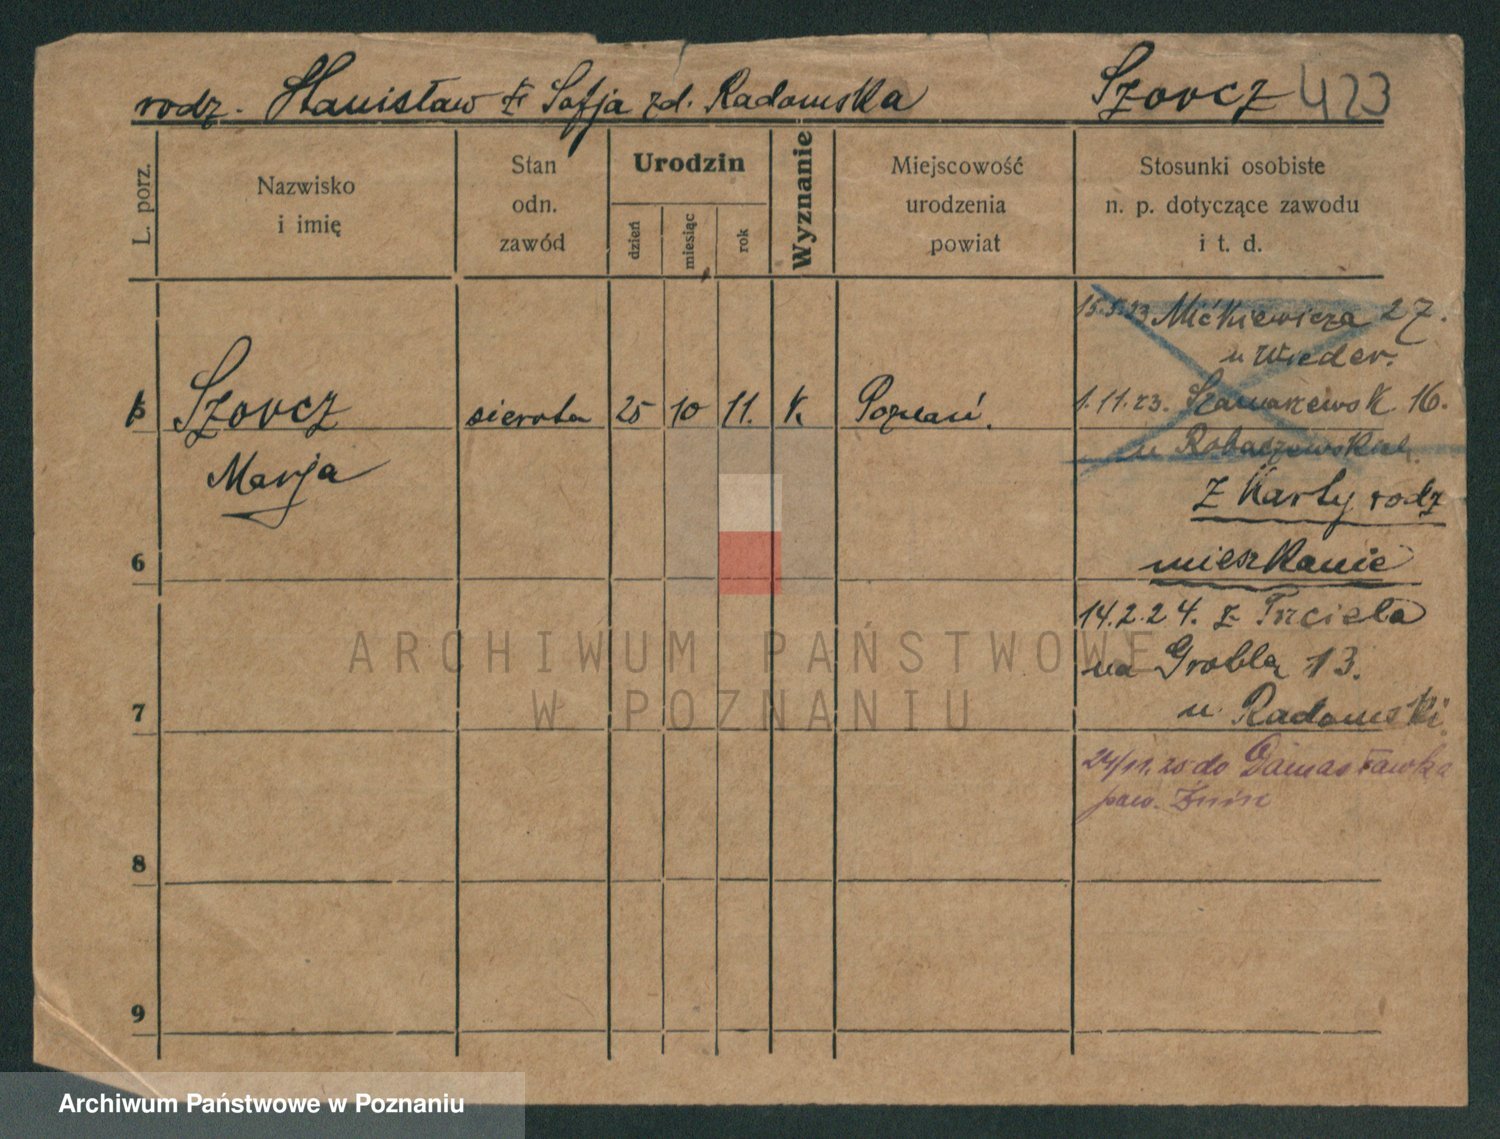 rodz. Stanisław i Sofja zd. Radomska Szovcz 423
L. porz.
Nazwisko i imię
Stan odn. zawód
Urodzin
dzień miesiąc rok
Wyznanie
Miejscowość urodzenia powiat
Stosunki osobiste n. p. dotyczące zawodu i t. d.
15.5.23 Mickiewicza 27.
u Wieder.
5 Szovcz sierota 25 10 11. k. Poznań. 1.11.23. 16.
Marja
u Robaczewskich.
Z Karty rodz
6 mieszkanie
14.2.24. z Trzciela
na Grobla 13.
7 u Radomski.
do Damasławka
pow. Żnin
8
9
ARCHIWUM PAŃSTWOWE
W POZNANIU
Archiwum Państwowe w Poznaniu